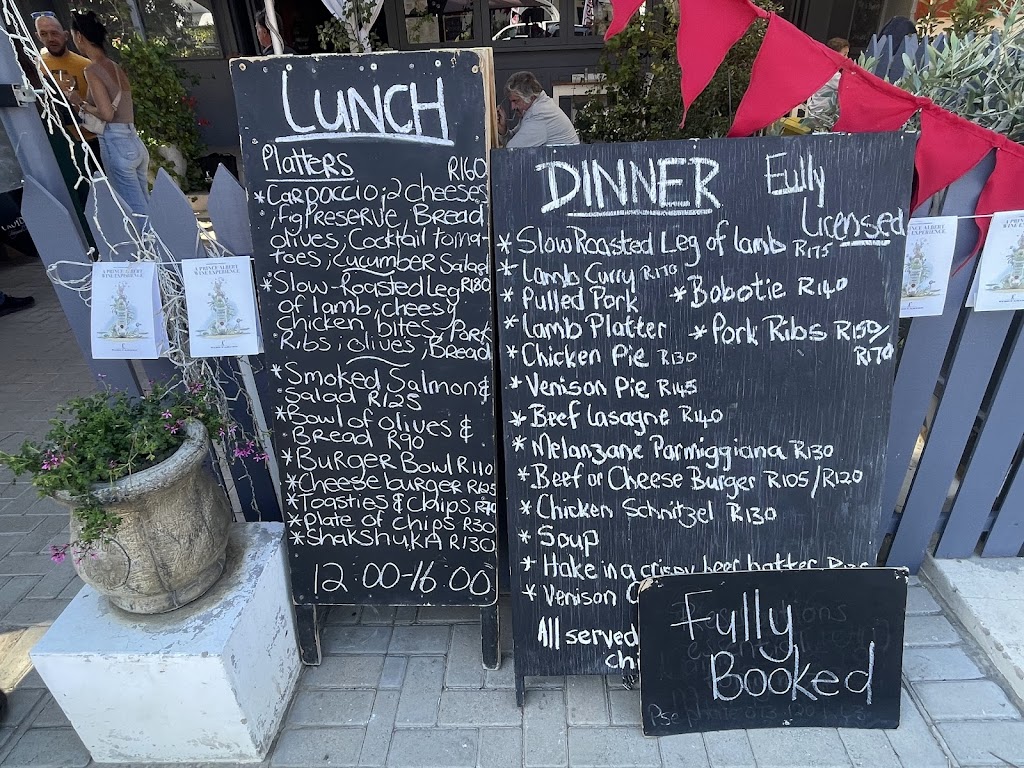 LUNCH
Platters R160
* Carpoccio ; 2 cheeses
; fig Preserve, Bread
olives ; Cocktail toma-
toes ; cucumber Salad
* Slow-Roasted Leg R180
of lamb, cheesy
chicken bites, Pork
Ribs ; olives ; Bread
* Smoked Salmon &
Salad R125
* Bowl of olives &
Bread R90
* Burger Bowl R110
* Cheese burger R125
* Toasties & Chips R70
* Plate of chips R30
* Shakshuka R130
12:00-16:00
DINNER Fully
Licensed
* Slow Roasted Leg of lamb R175
* Lamb Curry R170
* Pulled Pork * Bobotie R140
* Lamb Platter * Pork Ribs R150/
R170
* Chicken Pie R130
* Venison Pie R145
* Beef lasagne R140
* Melanzane Parmiggiana R130
* Beef or Cheese Burger R105/R120
* Chicken Schnitzel R130
* Soup
* Hake in a crispy beer batter
* Venison
All served
chi
Fully
Booked
A PRINCE ALBERT
WINE EXPERIENCE
A PRINCE ALBERT
WINE EXPERIENCE